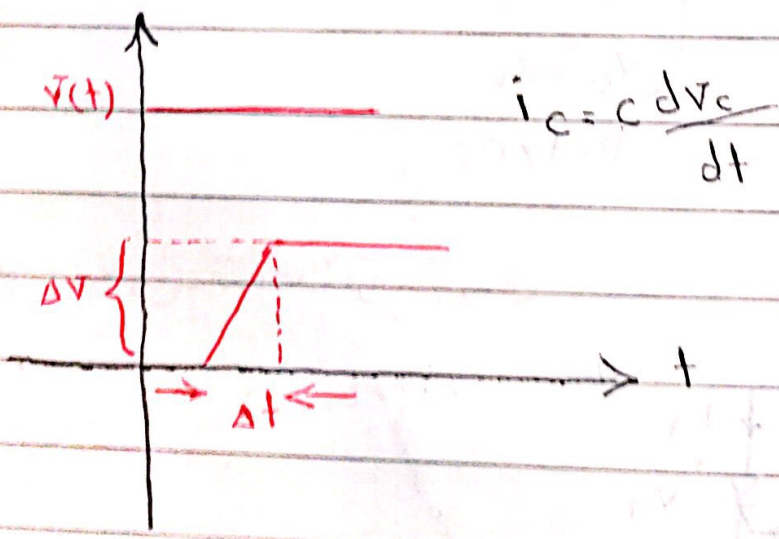 v(t)
i c = c dvc/dt
ΔV
t
Δt